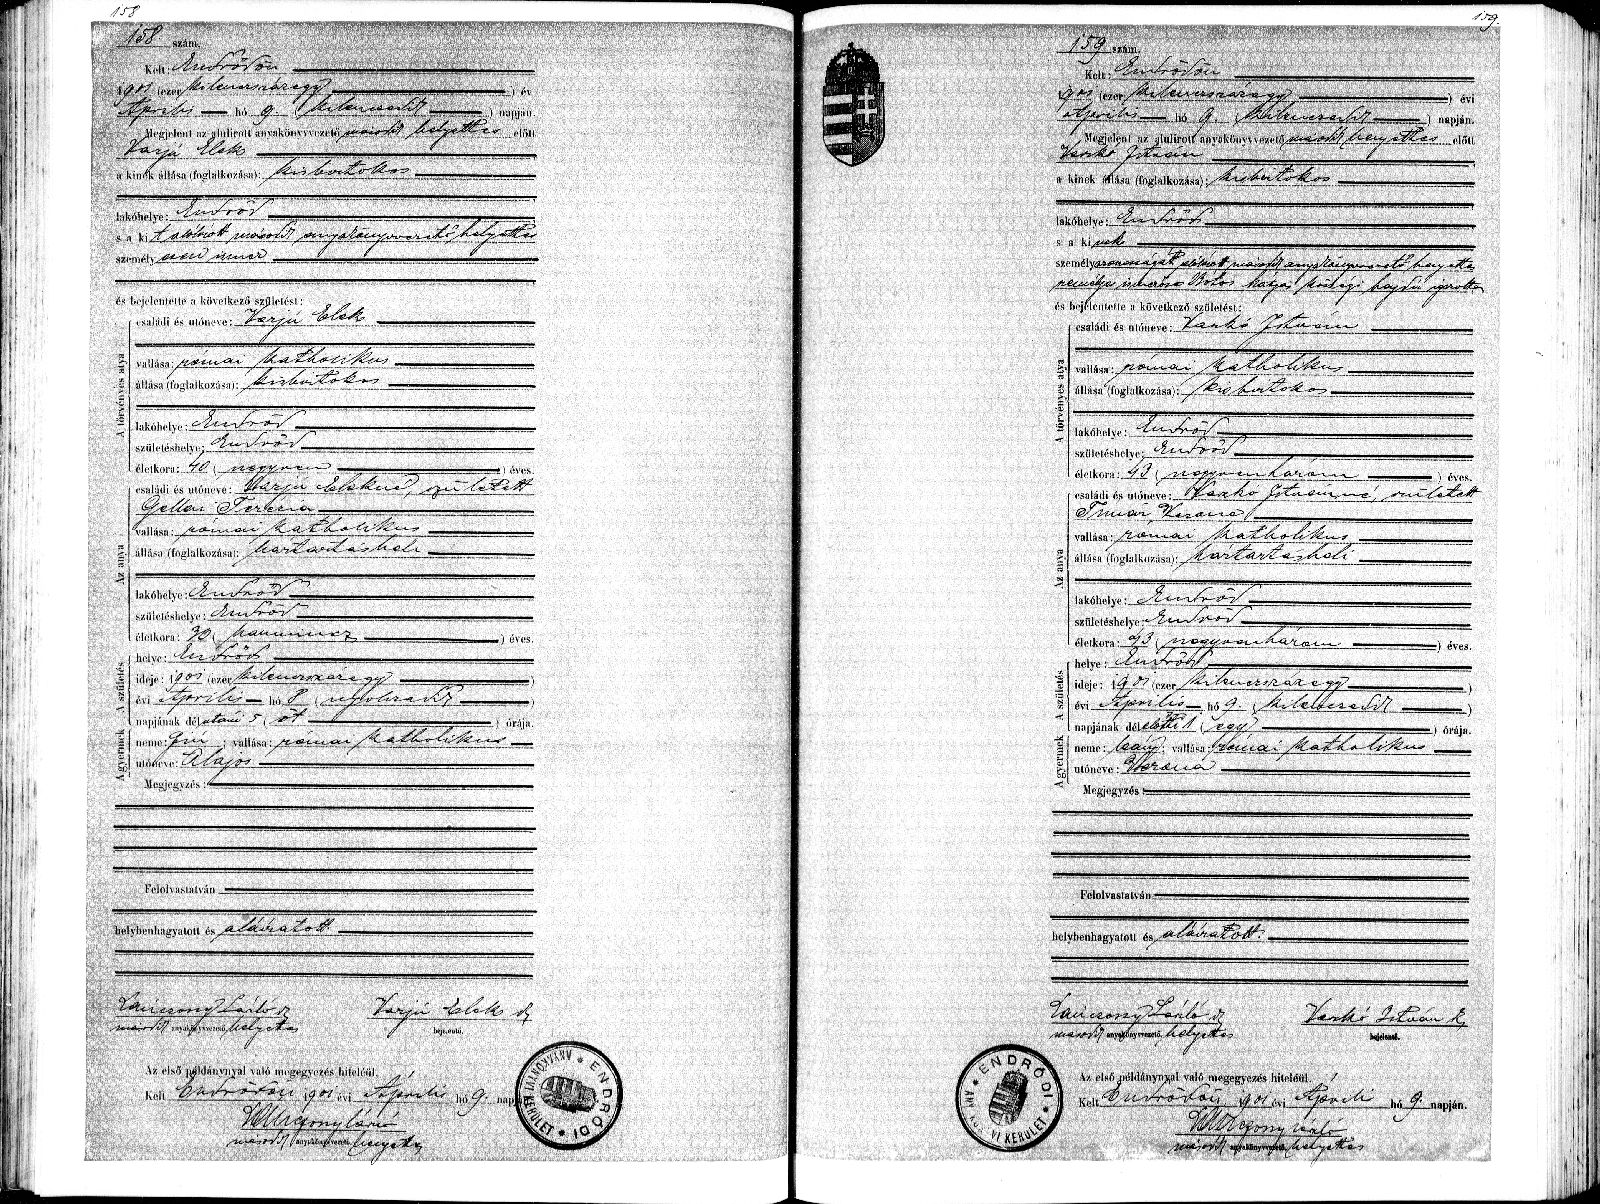 158
158 szám.
Kelt: Endrődön
1901 (ezer kilencszázegy) év
Április hó 9. (kilencedik) napján.
Megjelent az alulirott anyakönyvvezető másod helyettes előtt
Varjú Elek
a kinek állása (foglalkozása): kisbirtokos
lakóhelye: Endrőd
s a ki t alólirott másod anyakönyvvezető helyettes
személyesen ismer
és bejelentette a következő születést:
A törvényes atya
családi és utóneve: Varjú Elek
vallása: római katholikus
állása (foglalkozása): kisbirtokos
lakóhelye: Endrőd
születéshelye: Endrőd
életkora: 40 (negyven) éves.
Az anya
családi és utóneve: Varjú Elekné, született
Gellai Terézia
vallása: római katholikus
állása (foglalkozása): háztartásbeli
lakóhelye: Endrőd
születéshelye: Endrőd
életkora: 30 (harmincz) éves.
A születés
helye: Endrőd
ideje: 1901 (ezer kilencszázegy)
évi Április hó 8 (nyolczadik)
napjának délutáni 5 (öt) órája.
A gyermek
neme: fiú; vallása: római katholikus
utóneve: Alajos
Megjegyzés:
Felolvastatván
helybenhagyatott és aláiratott
László Varjú Elek
másod anyakönyvvezető helyettes bejelentő.
Az első példánynyal való megegyezés hiteléül.
Kelt Endrődön, 1901 évi Április hó 9. napján
másod anyakönyvvezető helyettes
ENDRŐDI ANYAKÖNYVI KERÜLET
159.
159 szám.
Kelt: Endrődön
1901 (ezer kilencszázegy) évi
Április hó 9. (kilencedik) napján.
Megjelent az alulirott anyakönyvvezető másod helyettes előtt
Vaskó István
a kinek állása (foglalkozása): kisbirtokos
lakóhelye: Endrőd
s a ki nek
személyazonosságát alólirott másod anyakönyvvezető helyettes
személyes ismerőse községi hajdú igazolta
és bejelentette a következő születést:
A törvényes atya
családi és utóneve: Vaskó István
vallása: római katholikus
állása (foglalkozása): kisbirtokos
lakóhelye: Endrőd
születéshelye: Endrőd
életkora: 43 (negyvenhárom) éves.
Az anya
családi és utóneve: Vaskó Istvánné, született
Timár Verona
vallása: római katholikus
állása (foglalkozása): háztartásbeli
lakóhelye: Endrőd
születéshelye: Endrőd
életkora: 43 (negyvenhárom) éves.
A születés
helye: Endrőd
ideje: 1901 (ezer kilencszázegy)
évi Április hó 9. (kilencedik)
napjának délelőtti 1 (egy) órája.
A gyermek
neme: leány; vallása: római katholikus
utóneve: Verona
Megjegyzés:
Felolvastatván
helybenhagyatott és aláiratott.
László Vaskó István
másod anyakönyvvezető helyettes bejelentő.
Az első példánynyal való megegyezés hiteléül.
Kelt Endrődön 1901 évi Április hó 9. napján.
másod anyakönyvvezető helyettes
ENDRŐDI ANYAKÖNYVI KERÜLET